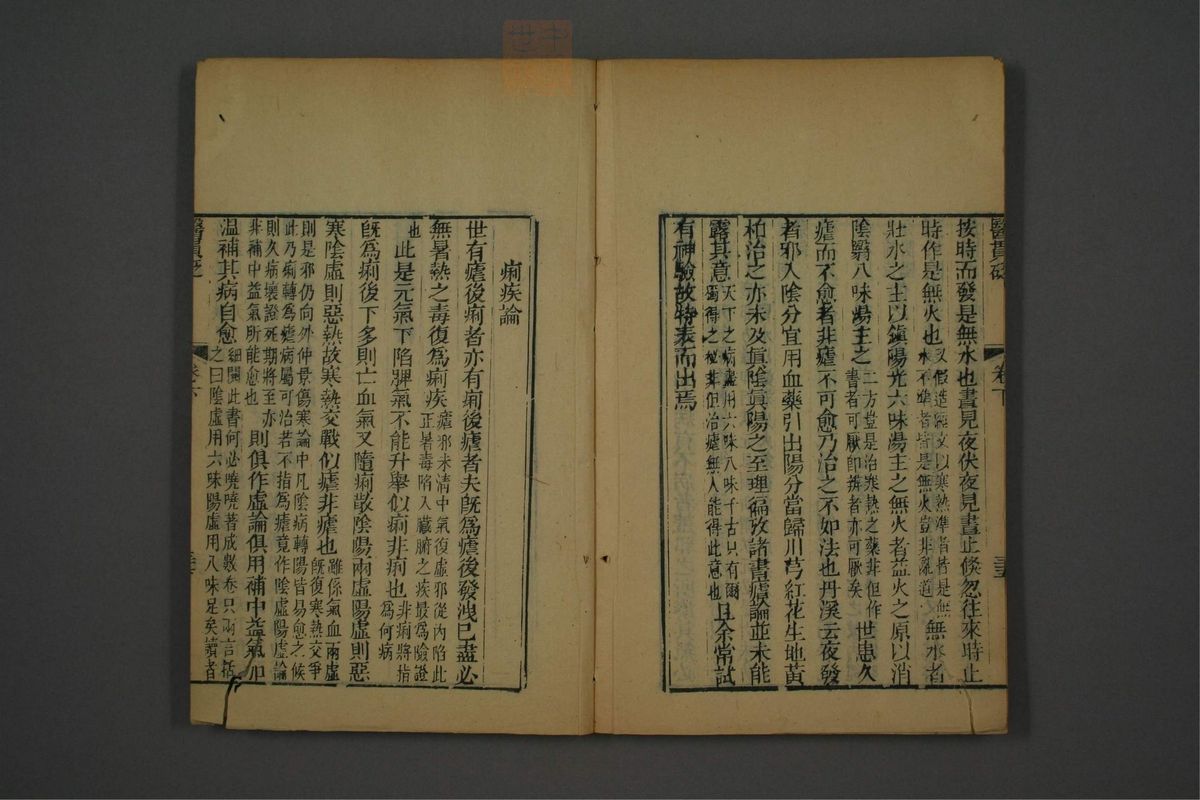 按時而發是無水也晝見夜伏夜見晝止倏忽往來時止
時作是無火也又假造經文以寒熱準者皆是無水不準者皆是無火豈非亂道無水者
壯水之主以鎮陽光六味湯主之無火者益火之原以消
陰翳八味湯主之二方豈是治寒熱之藥非但作書者可厭即辨者亦可厭矣世患久
瘧而不愈者非瘧不可愈乃治之不如法也丹溪云夜發
者邪入陰分宜用血藥引出陽分當歸川芎紅花生地黃
柏治之亦未及眞陰眞陽之至理徧攷諸書瘧論並未能
露其意天下之病盡用六味八味千古只有爾獨得之祕非但治瘧無人能得此意也且余常試
有神驗故特表而出焉
醫貫砭
卷下
痢疾論
世有瘧後痢者亦有痢後瘧者夫旣爲瘧後發洩已盡必
無暑熱之毒復爲痢疾瘧邪未清中氣復虛邪從內陷此正暑毒陷入臟腑之疾最爲險證
也此是元氣下陷脾氣不能升舉似痢非痢也非痢將指爲何病
旣爲痢後下多則亡血氣又隨痢散陰陽兩虛陽虛則惡
寒陰虛則惡熱故寒熱交戰似瘧非瘧也雖係氣血兩虛旣復寒熱交爭
則是邪仍向外仲景傷寒論中凡陰病轉陽皆易愈之候此乃痢轉爲瘧病屬可治若不指爲瘧竟作陰虛陽虛論
則久病壞證死期將至亦非補中益氣所能愈也則俱作虛論俱用補中益氣加
溫補其病自愈細閱此書何必曉曉著成數卷只兩言括之曰陰虛用六味陽虛用八味足矣讀者
醫貫砭
卷下